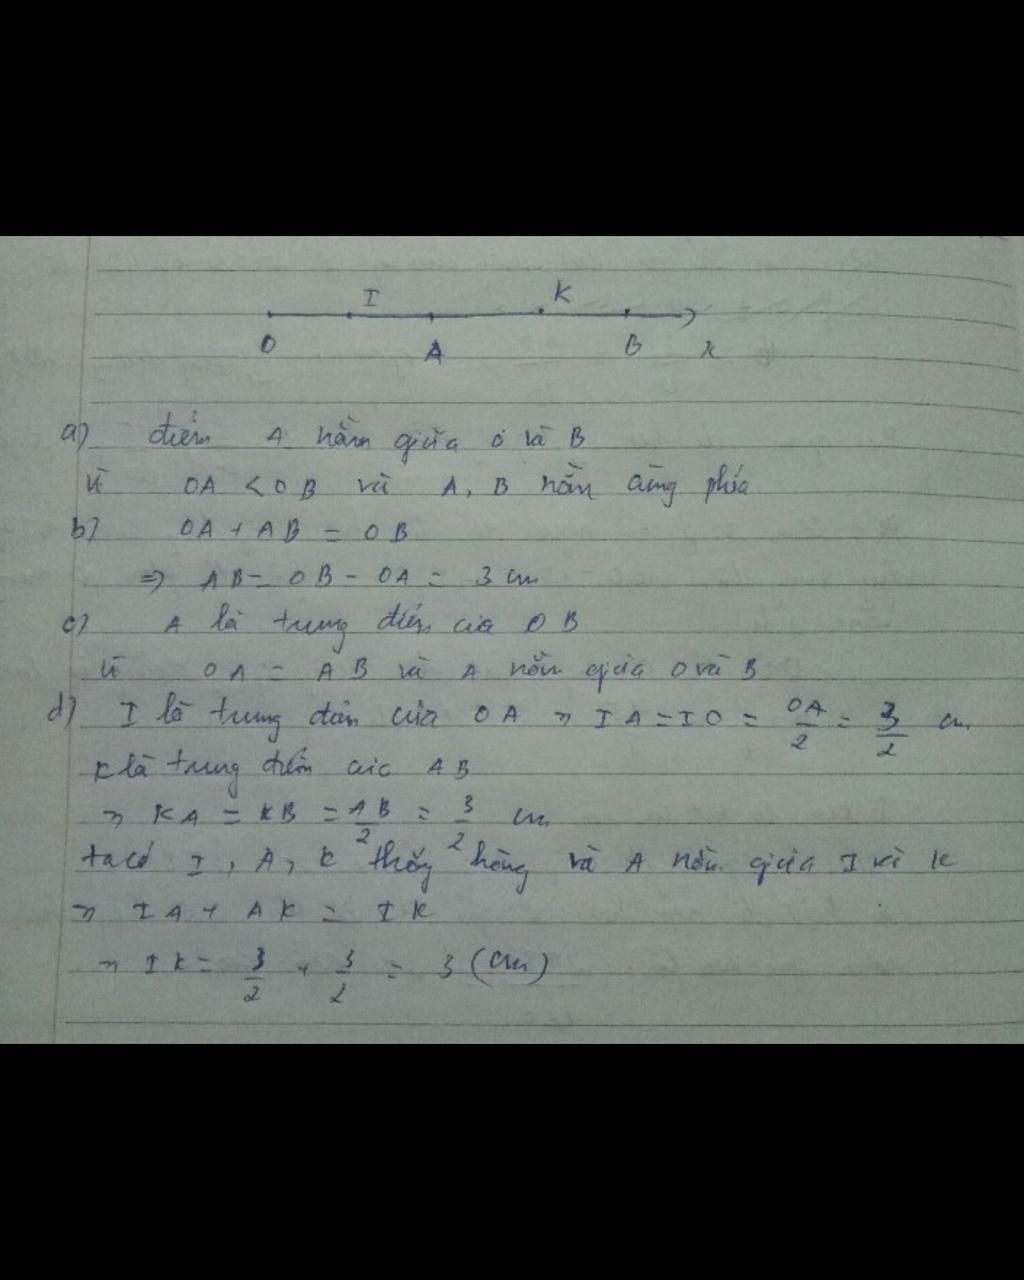 I K
O A B x
a) điểm A nằm giữa O và B
Vì OA < OB và A, B nằm cùng phía
b) OA + AB = OB
=> AB = OB - OA = 3 cm
c) A là trung điểm của OB
Vì OA = AB và A nằm giữa O và B
d) I là trung điểm của OA => IA = IO = OA/2 = 3/2 cm
K là trung điểm của AB
=> KA = KB = AB/2 = 3/2 cm
ta có I, A, K thẳng hàng và A nằm giữa I và K
=> IA + AK = IK
=> IK = 3/2 + 3/2 = 3 (cm)